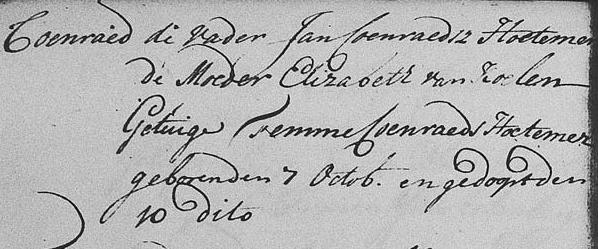 Coenraed de Vader Jan Coenraedsz Hoetemer
de Moeder Elizabeth van Loelen
Getuige Femme Coenraeds Hoetemer
gebooren den 7 Octob. en gedoopt den
10 dito